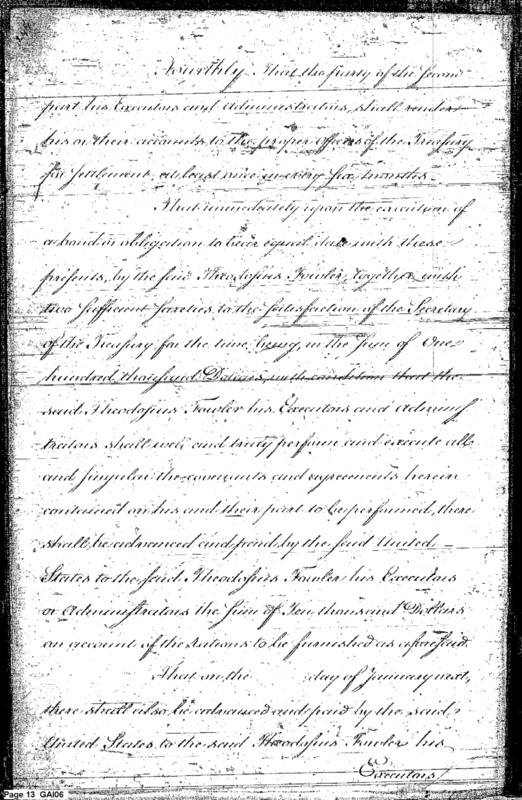 Fourthly That the party of the second
part his Executors and Administrators, shall render
his or their accounts to the proper officers of the Treasury
for settlement at least once in every six months.
That immediately upon the execution of
a bond or obligation to bear equal date with these
presents, by the said Theodosius Fowler, together with
two sufficient sureties to the satisfaction of the Secretary
of the Treasury for the time being, in the sum of One
hundred thousand Dollars, with condition that the
said Theodosius Fowler his Executors and Adminis
trators shall well and truly perform and execute all
and singular the covenants and agreements herein
contained on his and their part to be performed, there
shall be advanced and paid by the said United
States to the said Theodosius Fowler his Executors
or Administrators the sum of Ten thousand Dollars
on account of the rations to be furnished as aforesaid.
That on the day of January next,
there shall also be advanced and paid by the said
United States to the said Theodosius Fowler his
Executors
Page 13 GAI06